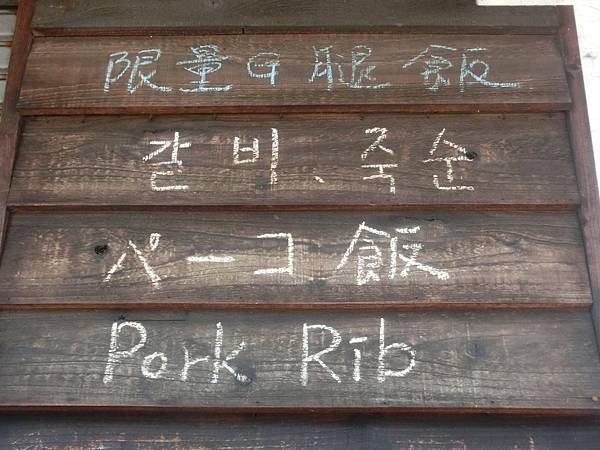 限量G腿飯
갈비、죽순
パーコ飯
Pork Rib